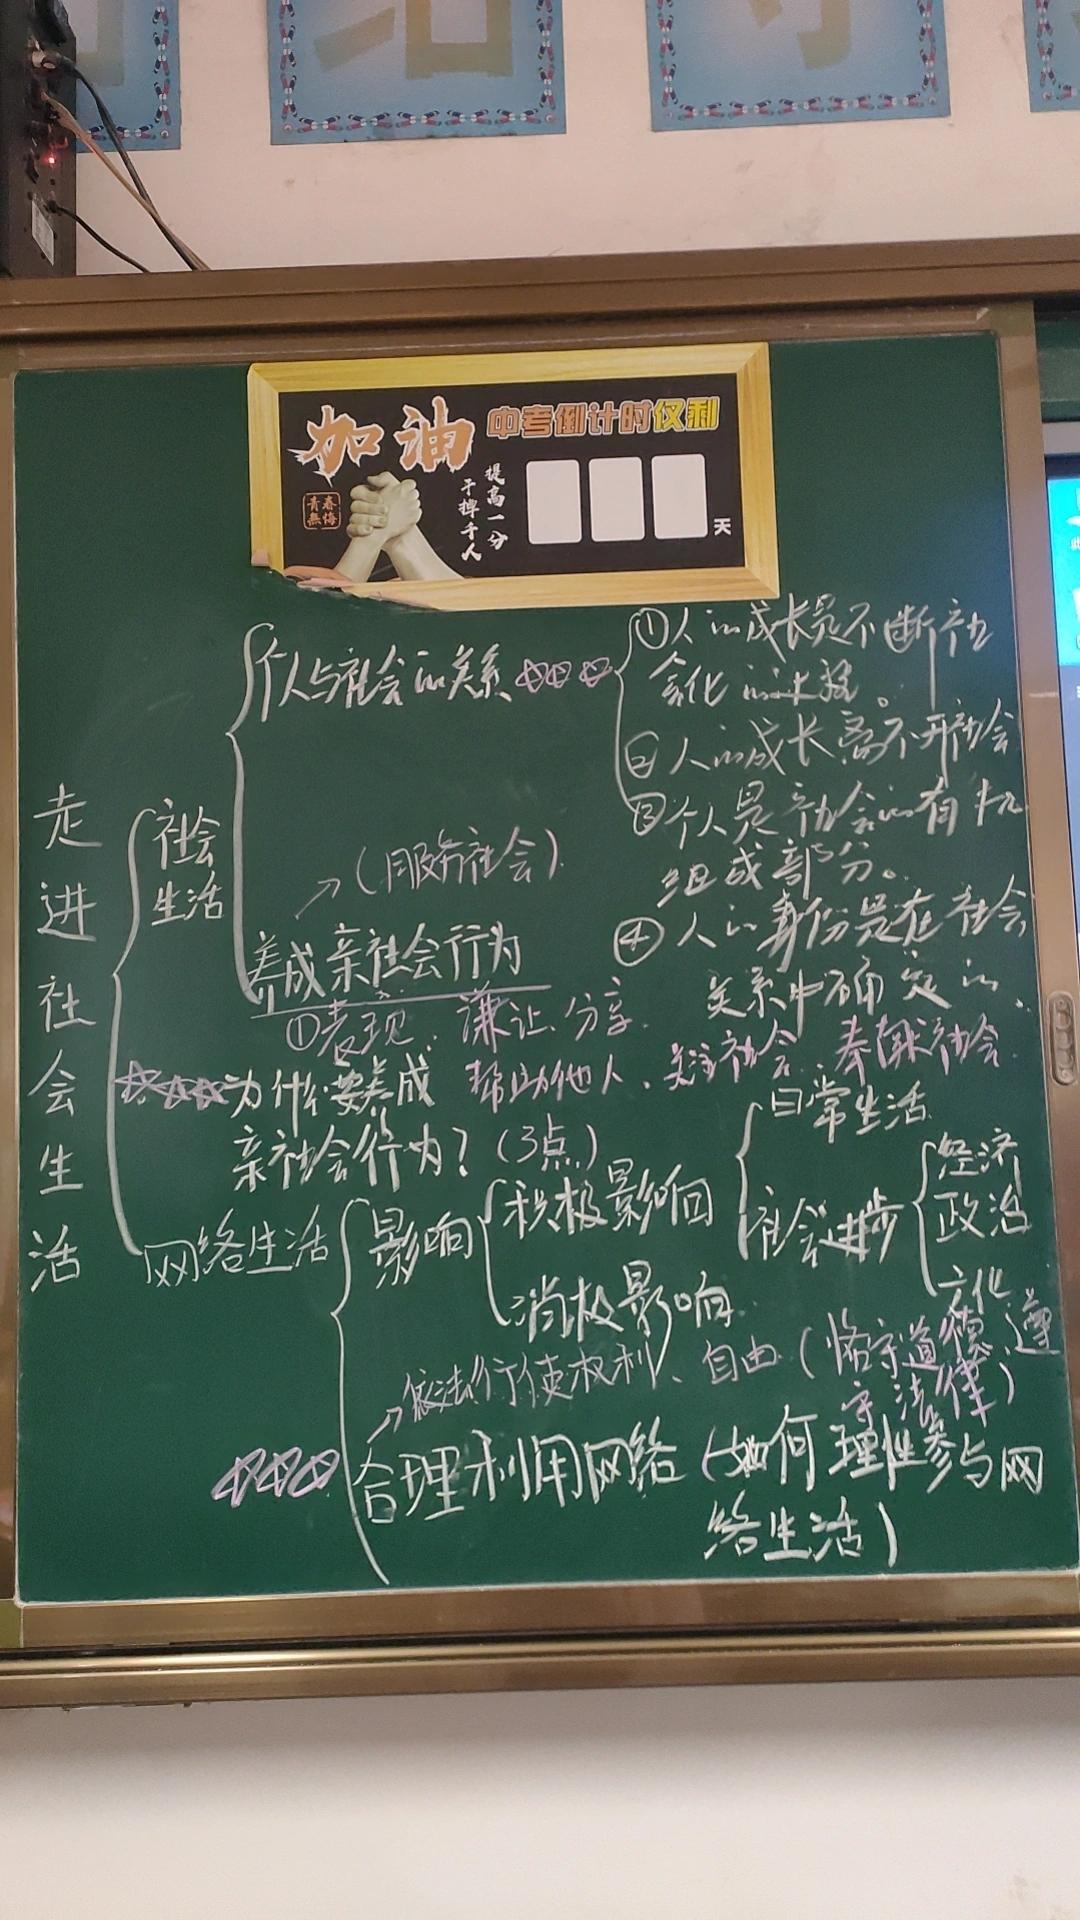 加油
中考倒计时仅剩
青春
無悔
提高一分
干掉千人
天
走进社会生活
社会
生活
个人与社会的关系
①人的成长是不断社
会化的过程。
②人的成长离不开社会
③个人是社会的有机
组成部分。
④人的身份是在社会
关系中确定的.
(服务社会)
养成亲社会行为
①表现:谦让.分享.
帮助他人.关注社会.奉献社会.
为什么要养成
亲社会行为?(3点)
网络生活
影响
积极影响
日常生活
社会进步
经济
政治
文化
消极影响
依法行使权利、自由(恪守道德、遵
守法律)
合理利用网络(如何理性参与网
络生活)